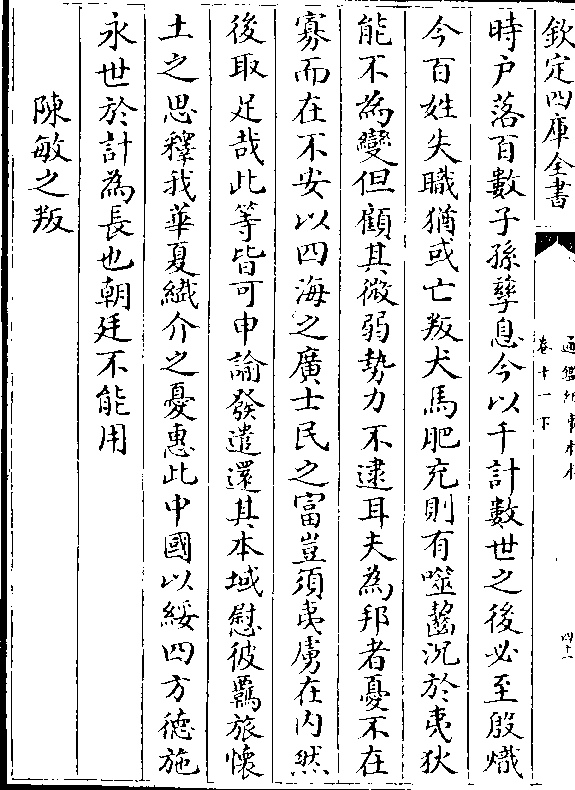 欽定四庫全書
通鑑紀事本末
卷十一下
四十一
時户落百數子孫孳息今以千計數世之後必至殷熾
今百姓失職猶或亡叛犬馬肥充則有噬齧況於夷狄
能不為變但顧其微弱勢力不逮耳夫為邦者憂不在
寡而在不安以四海之廣士民之富豈須夷虜在內然
後取足哉此等皆可申諭發遣還其本域慰彼羈旅懷
土之思釋我華夏纎介之憂惠此中國以綏四方德施
永世於計為長也朝廷不能用
陳敏之叛